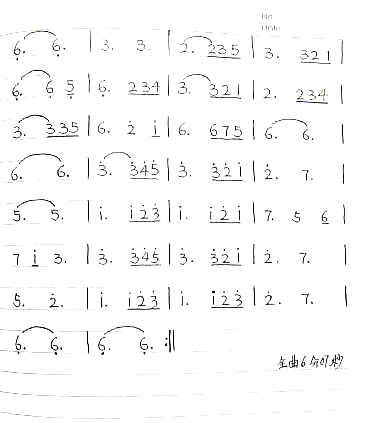 No.
Date
6̣. 6̣. | 3. 3. | 2. 235 | 3. 321 |
6̣. 6̣ 5̣ | 6̣. 234 | 3. 321 | 2. 234 |
3. 335 | 6. 2̇ i̇ | 6. 675 | 6. 6. |
6. 6. | 3̇. 3̇4̇5̇ | 3̇. 3̇2̇1̇ | 2̇. 7. |
5. 5. | i̇. i̇2̇3̇ | i̇. i̇2̇i̇ | 7. 5 6 |
7 i̇ 3. | 3̇. 3̇4̇5̇ | 3̇. 3̇2̇1̇ | 2̇. 7. |
5. 2̇. | i̇. i̇2̇3̇ | i̇. i̇2̇3̇ | 2̇. 7. |
6̣. 6̣. | 6̣. 6̣. :||
全曲6分07秒